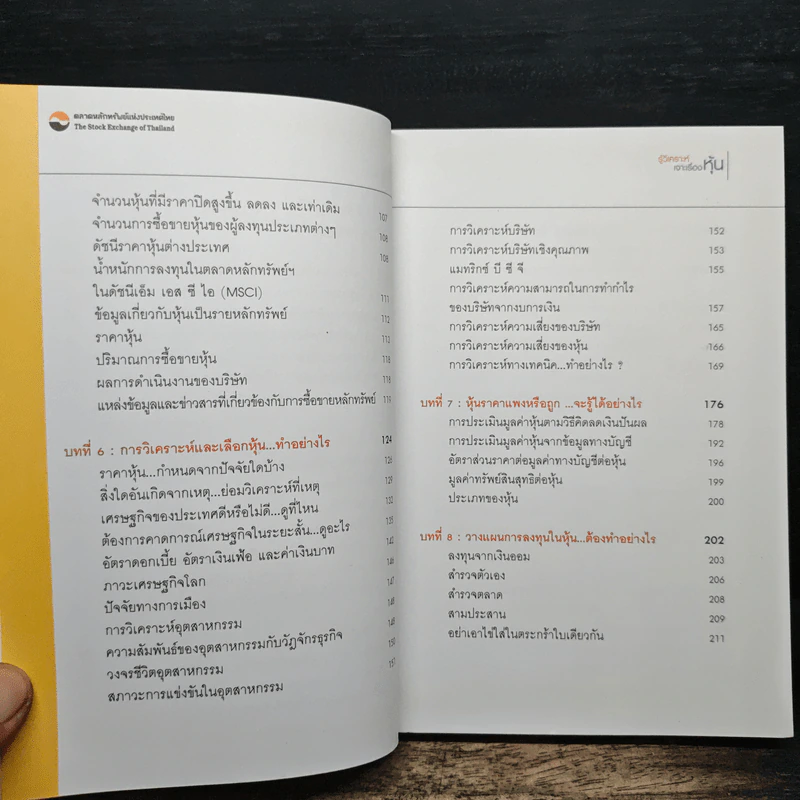 ตลาดหลักทรัพย์แห่งประเทศไทย
The Stock Exchange of Thailand
จำนวนหุ้นที่มีราคาปิดสูงขึ้น ลดลง และเท่าเดิม 107
จำนวนการซื้อขายหุ้นของผู้ลงทุนประเภทต่างๆ 108
ดัชนีราคาหุ้นต่างประเทศ 108
น้ำหนักการลงทุนในตลาดหลักทรัพย์ฯ
ในดัชนีเอ็ม เอส ซี ไอ (MSCI) 111
ข้อมูลเกี่ยวกับหุ้นเป็นรายหลักทรัพย์ 112
ราคาหุ้น 112
ปริมาณการซื้อขายหุ้น 118
ผลการดำเนินงานของบริษัท 118
แหล่งข้อมูลและข่าวสารที่เกี่ยวข้องกับการซื้อขายหลักทรัพย์ 119
บทที่ 6 : การวิเคราะห์และเลือกหุ้น...ทำอย่างไร 124
ราคาหุ้น...กำหนดจากปัจจัยใดบ้าง 126
สิ่งใดอันเกิดจากเหตุ...ย่อมวิเคราะห์ที่เหตุ 129
เศรษฐกิจของประเทศดีหรือไม่ดี...ดูที่ไหน 132
ต้องการคาดการณ์เศรษฐกิจในระยะสั้น...ดูอะไร 135
อัตราดอกเบี้ย อัตราเงินเฟ้อ และค่าเงินบาท 142
ภาวะเศรษฐกิจโลก 146
ปัจจัยทางการเมือง 147
การวิเคราะห์อุตสาหกรรม 148
ความสัมพันธ์ของอุตสาหกรรมกับวัฏจักรธุรกิจ 148
วงจรชีวิตอุตสาหกรรม 150
สภาวะการแข่งขันในอุตสาหกรรม 151
รู้วิเคราะห์
เจาะเรื่อง หุ้น
การวิเคราะห์บริษัท 152
การวิเคราะห์บริษัทเชิงคุณภาพ 153
แมทริกซ์ บี ซี จี 155
การวิเคราะห์ความสามารถในการทำกำไร
ของบริษัทจากงบการเงิน 157
การวิเคราะห์ความเสี่ยงของบริษัท 165
การวิเคราะห์ความเสี่ยงของหุ้น 166
การวิเคราะห์ทางเทคนิค...ทำอย่างไร ? 169
บทที่ 7 : หุ้นราคาแพงหรือถูก ...จะรู้ได้อย่างไร 176
การประเมินมูลค่าหุ้นตามวิธีคิดลดเงินปันผล 178
การประเมินมูลค่าหุ้นจากข้อมูลทางบัญชี 192
อัตราส่วนราคาต่อมูลค่าทางบัญชีต่อหุ้น 196
มูลค่าทรัพย์สินสุทธิต่อหุ้น 199
ประเภทของหุ้น 200
บทที่ 8 : วางแผนการลงทุนในหุ้น...ต้องทำอย่างไร 202
ลงทุนจากเงินออม 203
สำรวจตัวเอง 206
สำรวจตลาด 208
สามประสาน 209
อย่าเอาไข่ใส่ในตระกร้าใบเดียวกัน 211